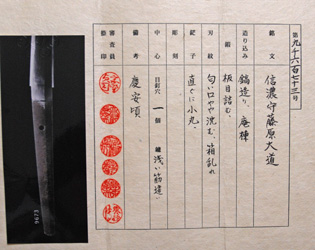 第九千六百七十三号
銘文 信濃守藤原大道
造り込み 鎬造り、庵棟
鍛 板目詰む、
刃紋 匂い口やや沈む、箱乱れ
鋩子 直ぐに小丸、
彫刻
中心 目釘穴 一個 鑢 浅い筋違い
備考 慶安頃
審査員
9673